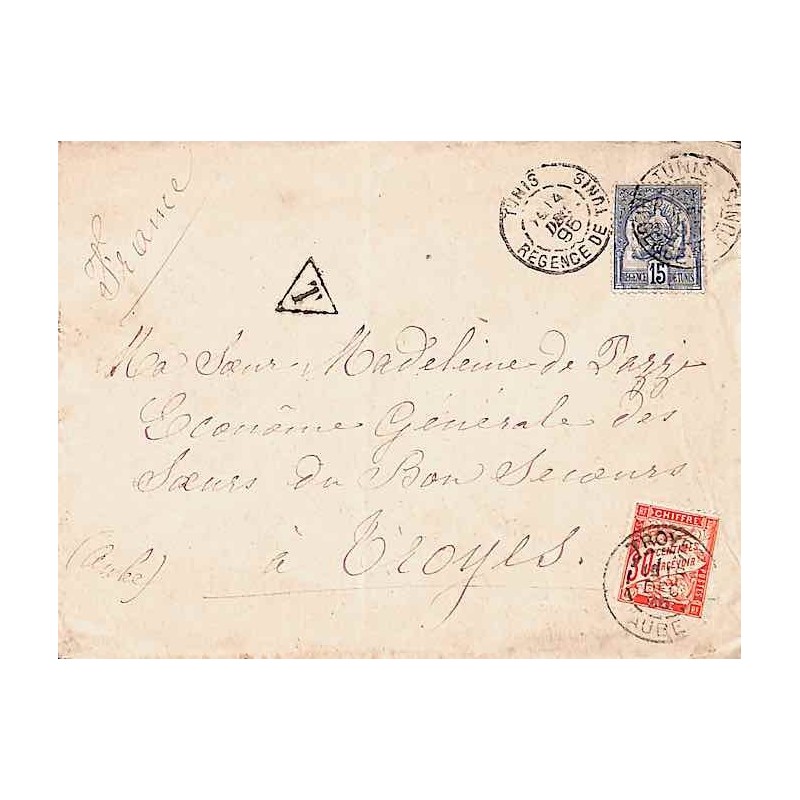 France
TUNIS TUNIS
14
DEC
95
REGENCE DE
TUNIS TUNIS
REGENCE
15
REGENCE DE TUNIS
T
Ma Sœur Madeleine de Pazzi
Econôme Générale des
Sœurs du Bon Secours
à Troyes.
(Aube)
CHIFFRE
30 CENTIMES
A PERCEVOIR
TROYES
DEC
AUBE